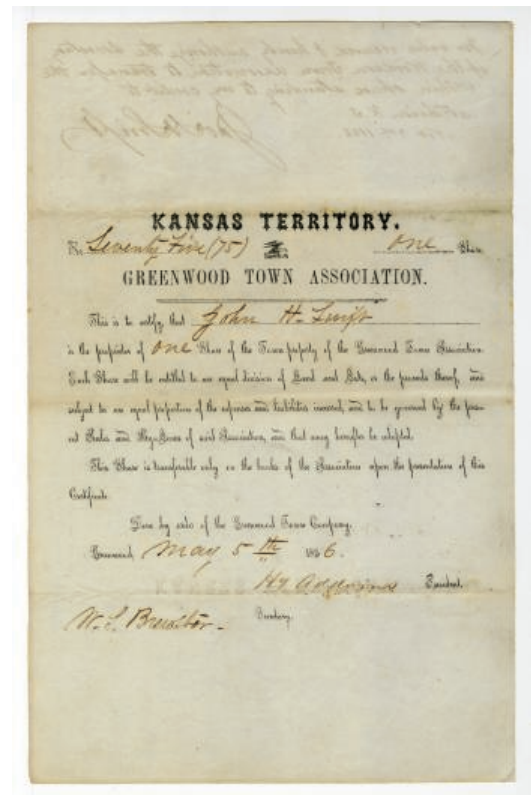 KANSAS TERRITORY.
No. Seventy Five (75) One Share
GREENWOOD TOWN ASSOCIATION.
This is to certify, that John H. Swift
is the proprietor of one Share of the Town property of the Greenwood Town Association.
Each Share will be entitled to an equal division of Land and Lots, or the proceeds thereof, and
subject to an equal proportion of the expenses and liabilities incurred, and to be governed by the pres-
ent Rules and Regulations of said Association, and that may hereafter be adopted.
This Share is transferable only on the books of the Association upon the presentation of this
Certificate.
Done by order of the Greenwood Town Company.
Greenwood, May 5th 1856.
President.
W. S. Brewster.
Secretary.